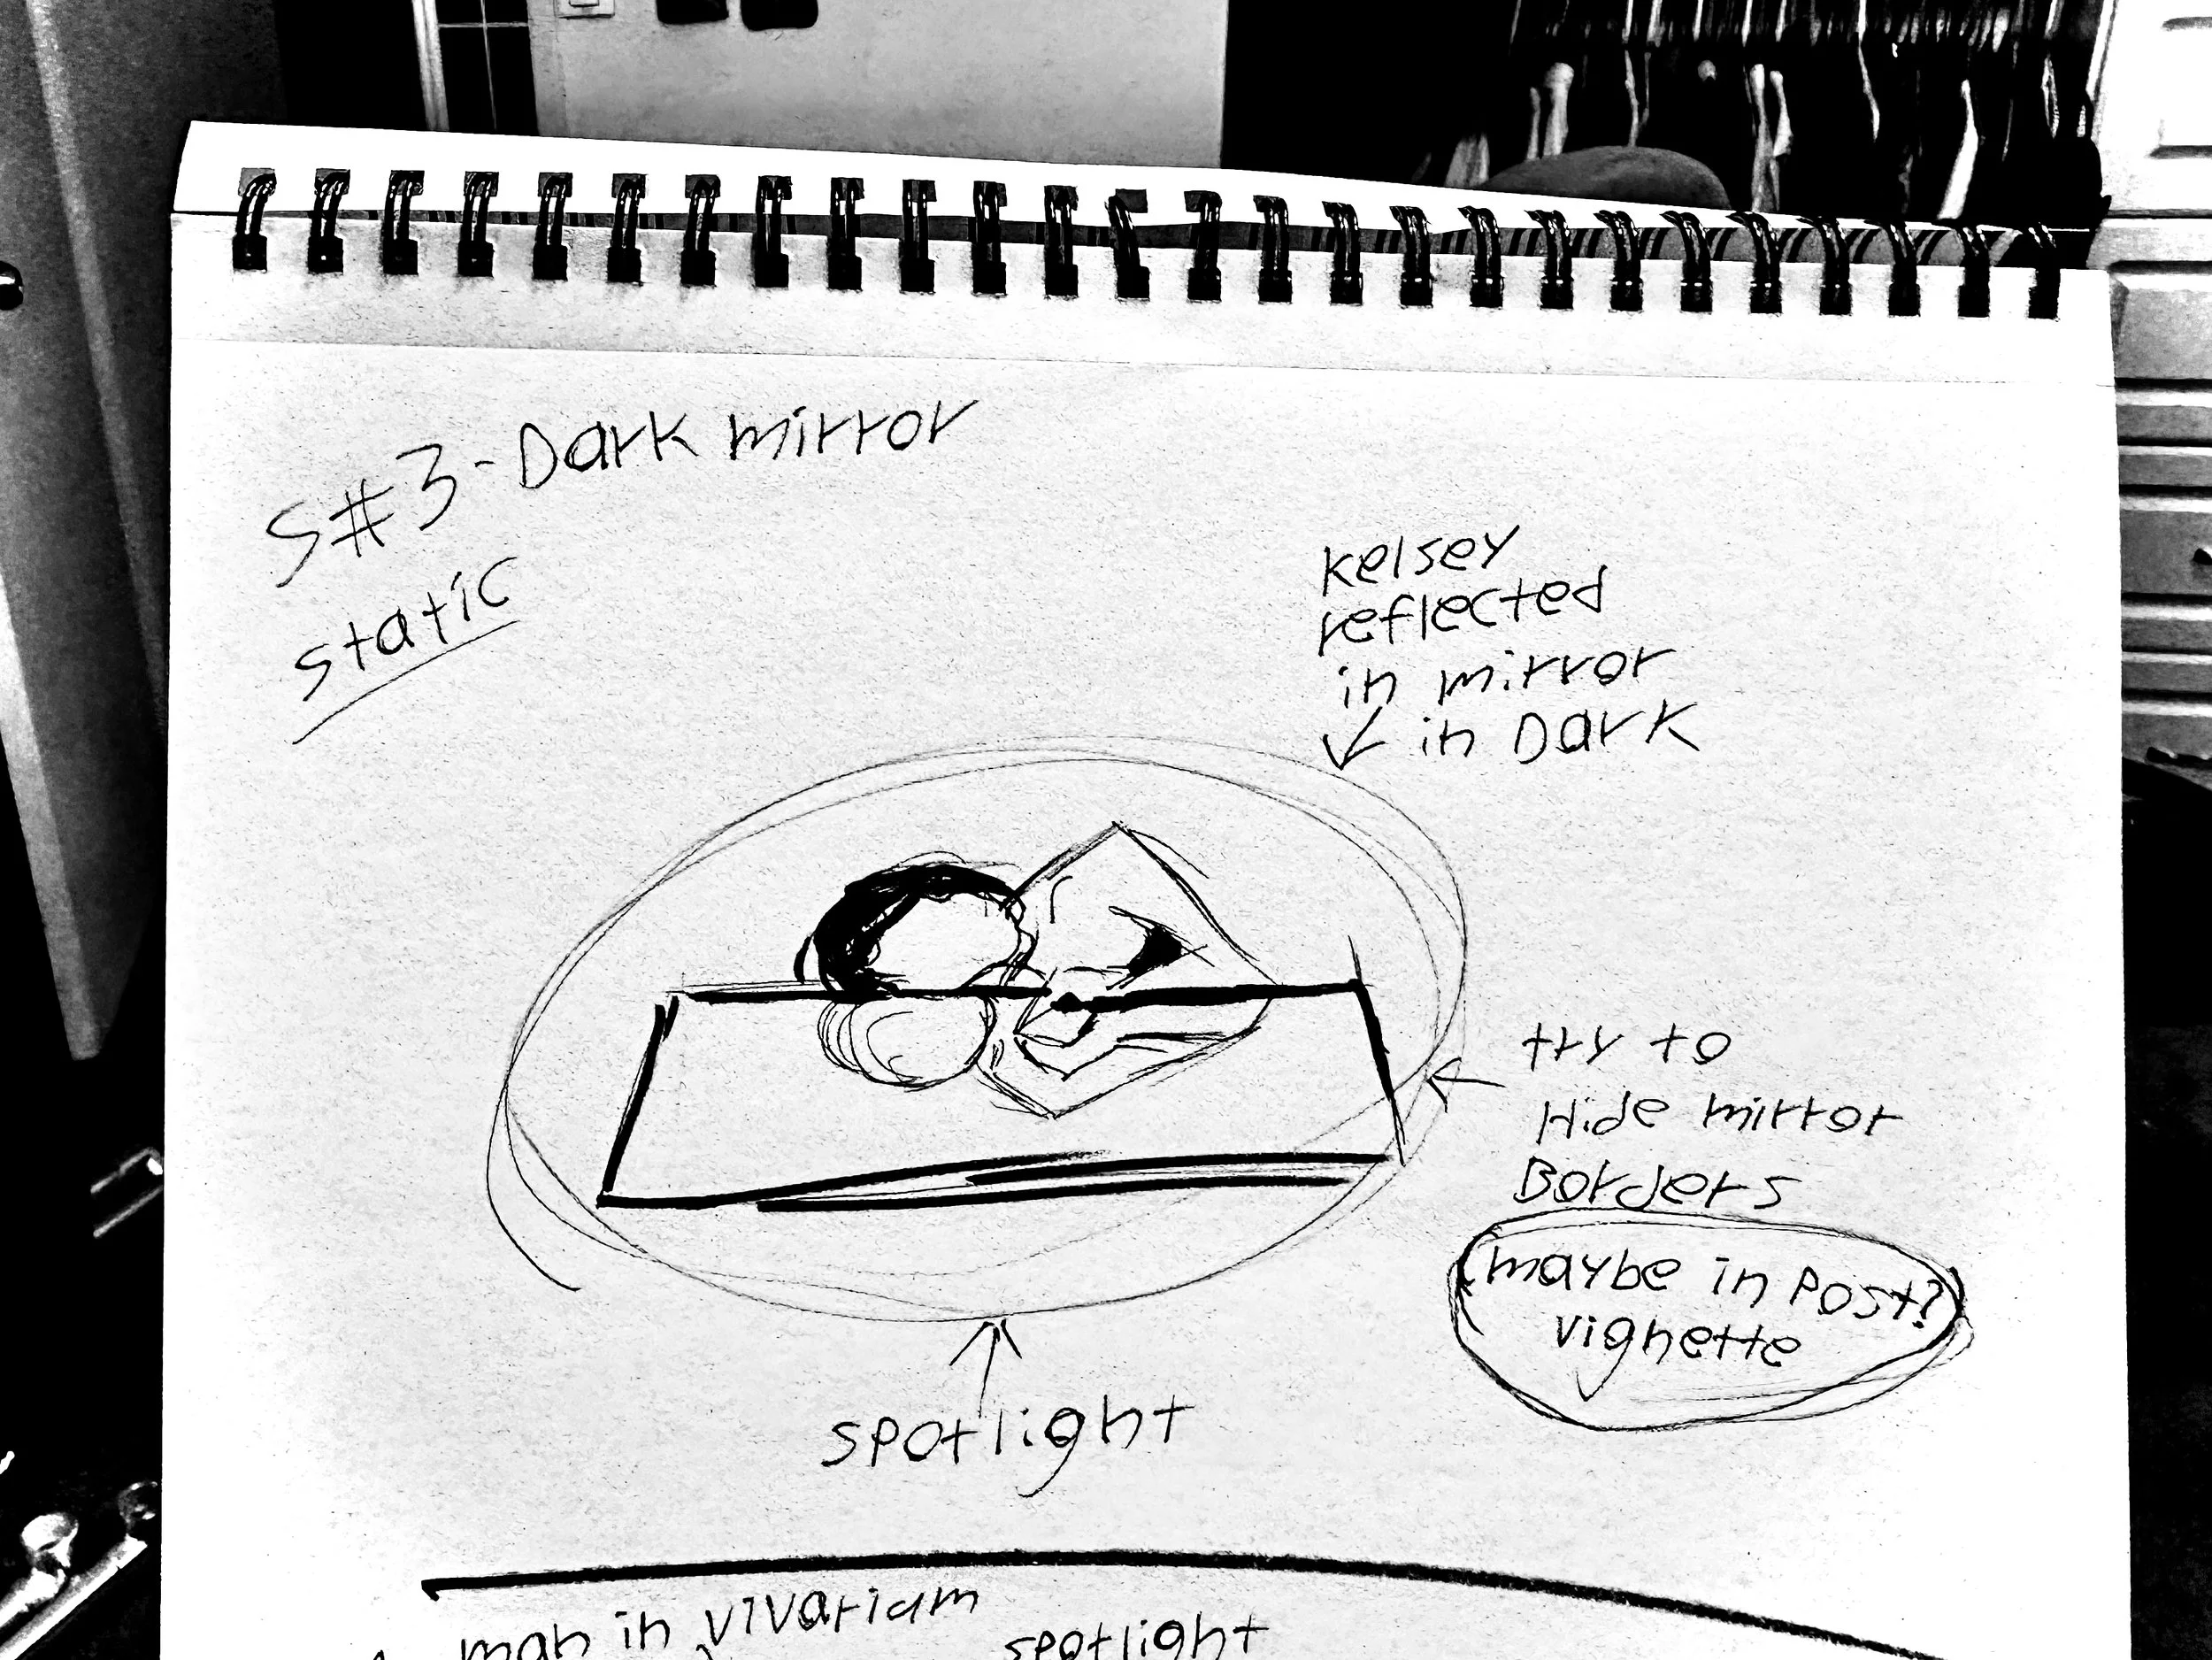 S#3-Dark mirror
static
kelsey
reflected
in mirror
in Dark
try to
Hide mirror
Borders
(maybe in Post?)
vignette
spotlight
man in vivarium
spotlight